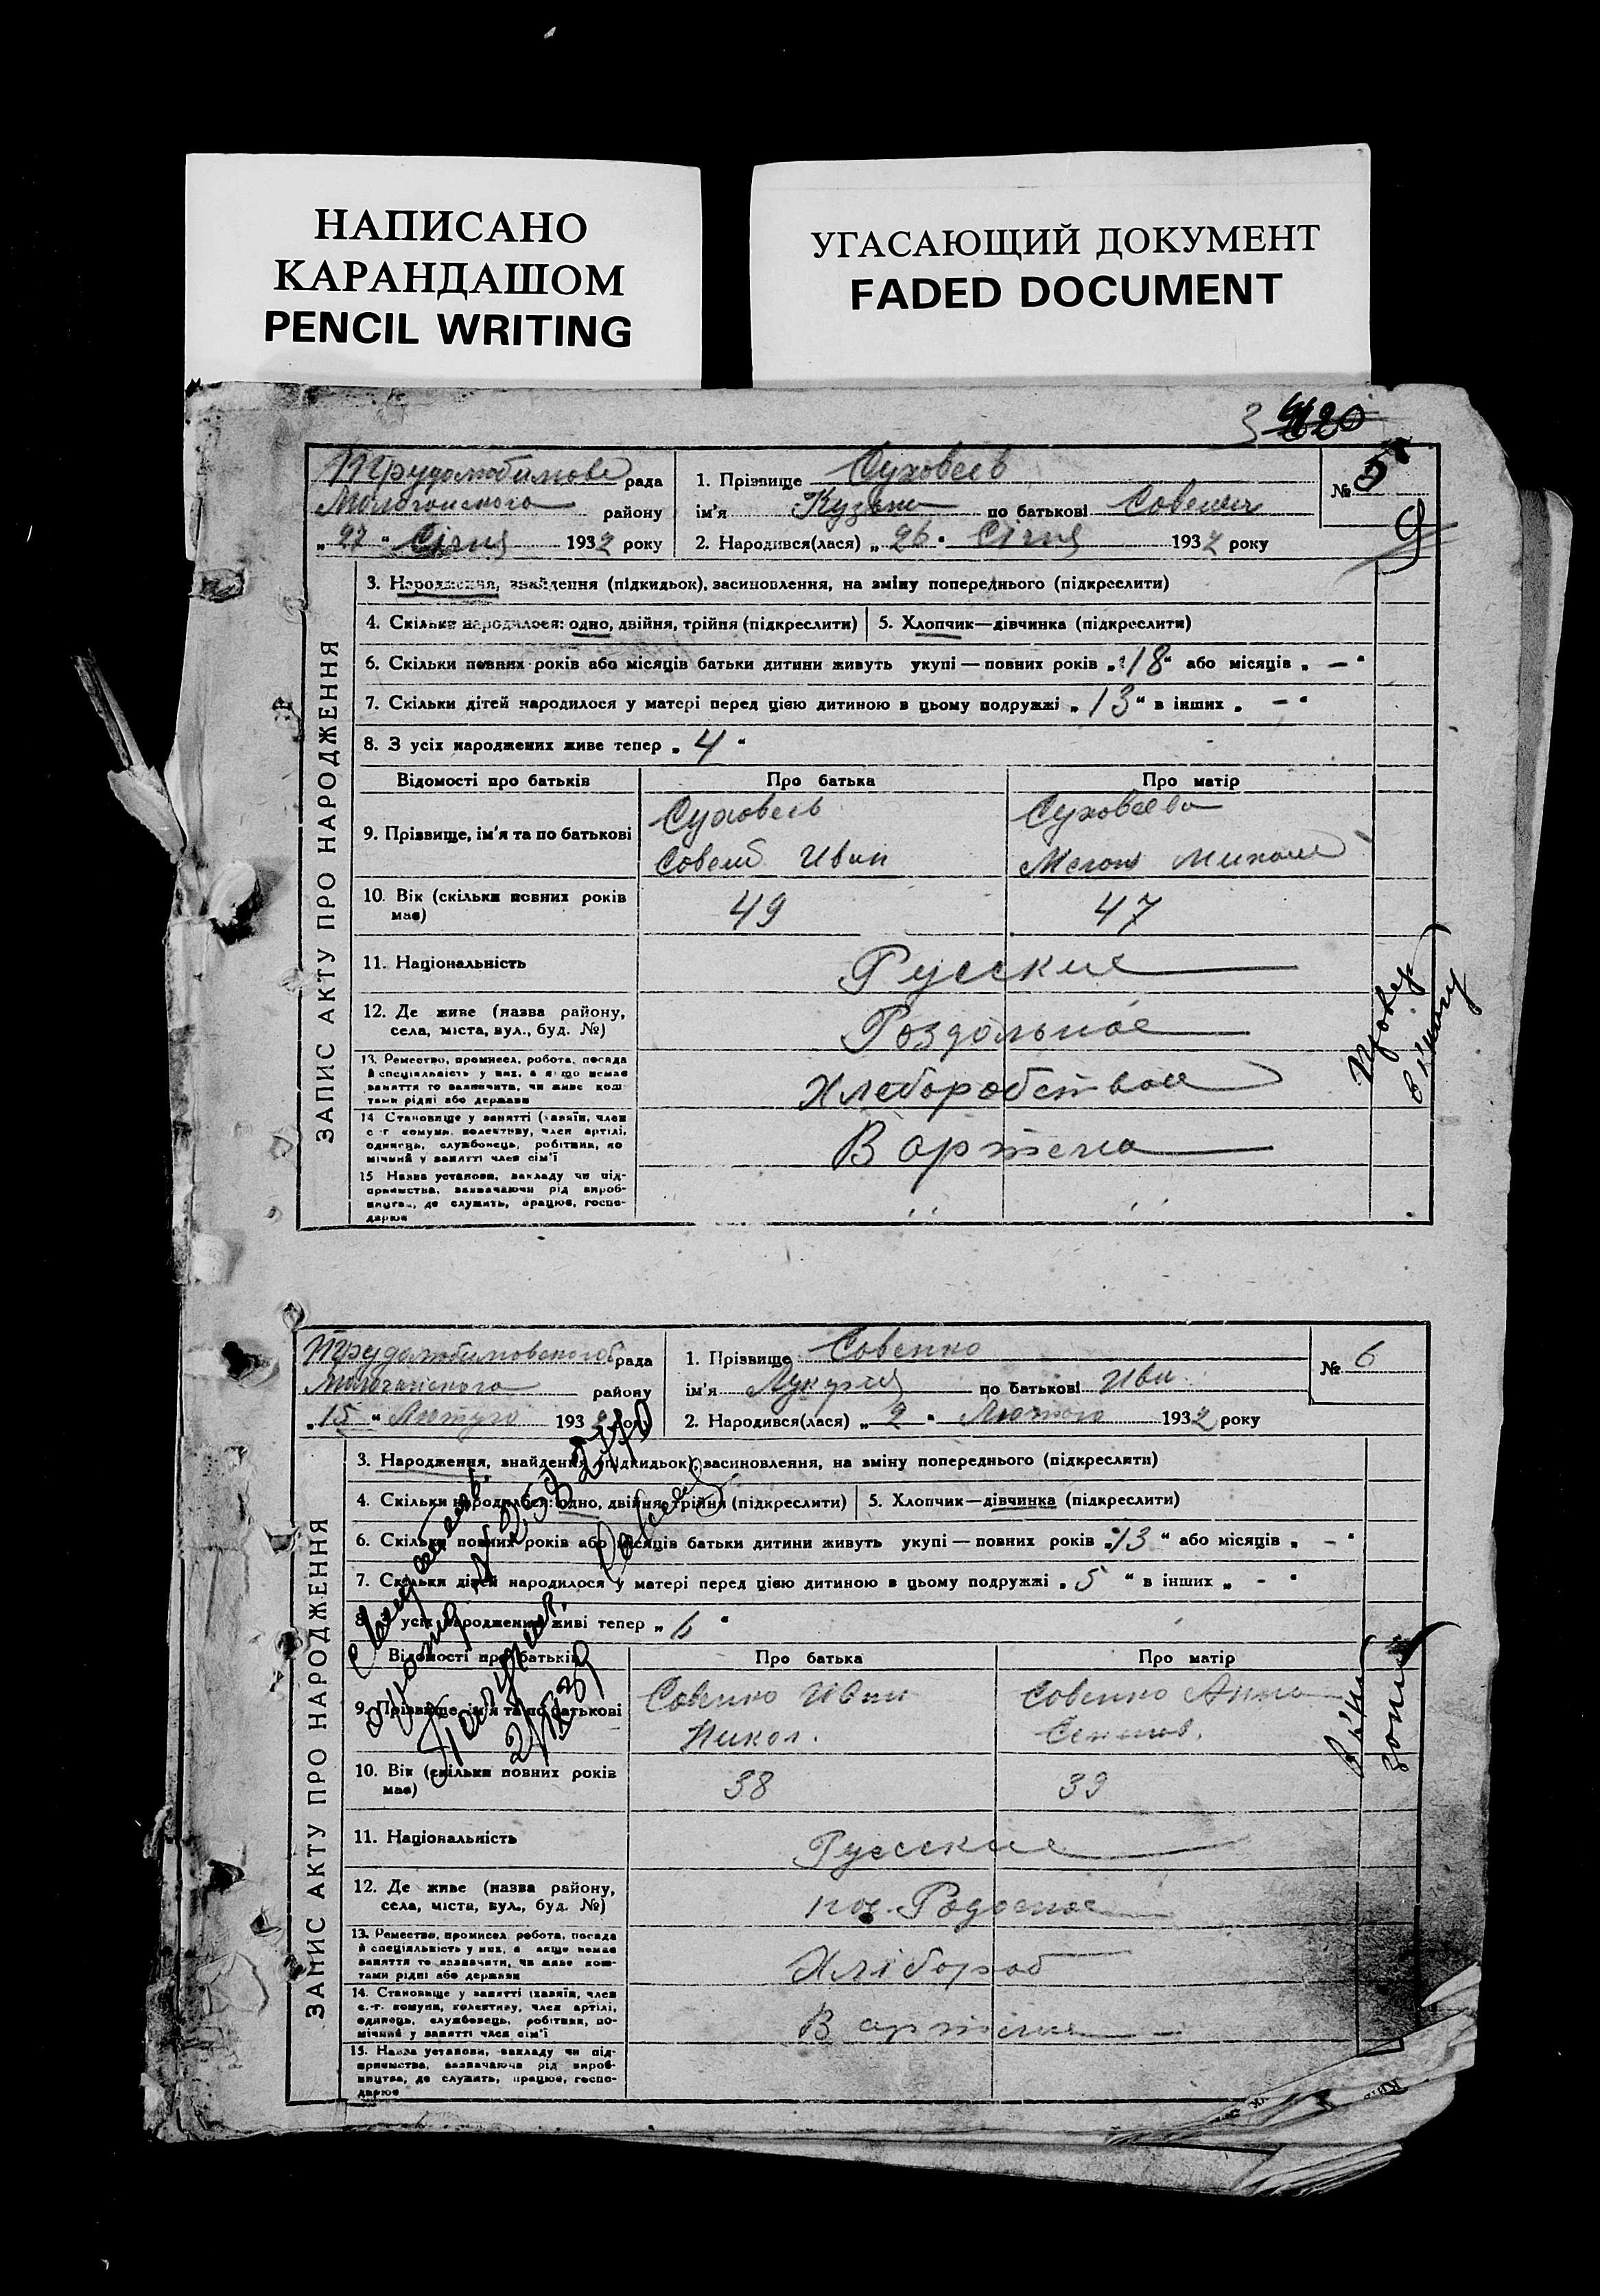 НАПИСАНО
КАРАНДАШОМ
PENCIL WRITING
УГАСАЮЩИЙ ДОКУМЕНТ
FADED DOCUMENT
3
рада
району
„ 27 “ Січня 1932 року
1. Прізвище Суховеев
ім'я Кузьма по батькові
2. Народився(лася) „ 26 “ Січня 1932 року
№ 5
ЗАПИС АКТУ ПРО НАРОДЖЕННЯ
3. Народження, знайдення (підкидьок), засиновлення, на зміну попереднього (підкреслити)
4. Скільки народилося: одно, двійня, трійня (підкреслити)
5. Хлопчик—дівчинка (підкреслити)
6. Скільки повних років або місяців батьки дитини живуть укупі — повних років „ 18 “ або місяців „ — “
7. Скільки дітей народилося у матері перед цією дитиною в цьому подружжі „ 13 “ в інших „ — “
8. З усіх народжених живе тепер „ 4 “
Відомості про батьків Про батька Про матір
9. Прізвище, ім'я та по батькові
Суховеев Суховеева
Иван
10. Вік (скільки повних років має) 49 47
11. Національність Русские
12. Де живе (назва району, села, міста, вул., буд. №) Роздольное
13. Ремество, промисел, робота, посада й спеціяльність у них, а якщо немає заняття то зазначити, чи живе коштами рідні або держави
Хлеборобством
14. Становище у занятті (хазяїн, член с.-г. комуни, колективу, член артілі, одинець, службовець, робітник, помічний у занятті член сім'ї
В артели
15. Назва установи, закладу чи підприємства, зазначаючи рід виробництва, де служить, працює, господарює
рада
району
„ 15 “ Лютого 1932 року
1. Прізвище Совенко
ім'я Лукерія по батькові Ив
2. Народився(лася) „ 2 “ Лютого 1932 року
№ 6
ЗАПИС АКТУ ПРО НАРОДЖЕННЯ
3. Народження, знайдення (підкидьок), засиновлення, на зміну попереднього (підкреслити)
4. Скільки народилося: одно, двійня, трійня (підкреслити)
5. Хлопчик—дівчинка (підкреслити)
6. Скільки повних років або місяців батьки дитини живуть укупі — повних років „ 13 “ або місяців „ - “
7. Скільки дітей народилося у матері перед цією дитиною в цьому подружжі „ 5 “ в інших „ - “
8. З усіх народжених живі тепер „ “
Відомості про батьків Про батька Про матір
9. Прізвище, ім'я та по батькові
Совенко Иван Совенко Анна
Никол.
10. Вік (скільки повних років має) 38 39
11. Національність Русские
12. Де живе (назва району, села, міста, вул., буд. №) пос.
13. Ремество, промисел, робота, посада й спеціяльність у них, а якщо немає заняття то зазначити, чи живе коштами рідні або держави
Хлібороб
14. Становище у занятті (хазяїн, член с.-г. комуни, колективу, член артілі, одинець, службовець, робітник, помічний у занятті член сім'ї
В артели
15. Назва установи, закладу чи підприємства, зазначаючи рід виробництва, де служить, працює, господарює